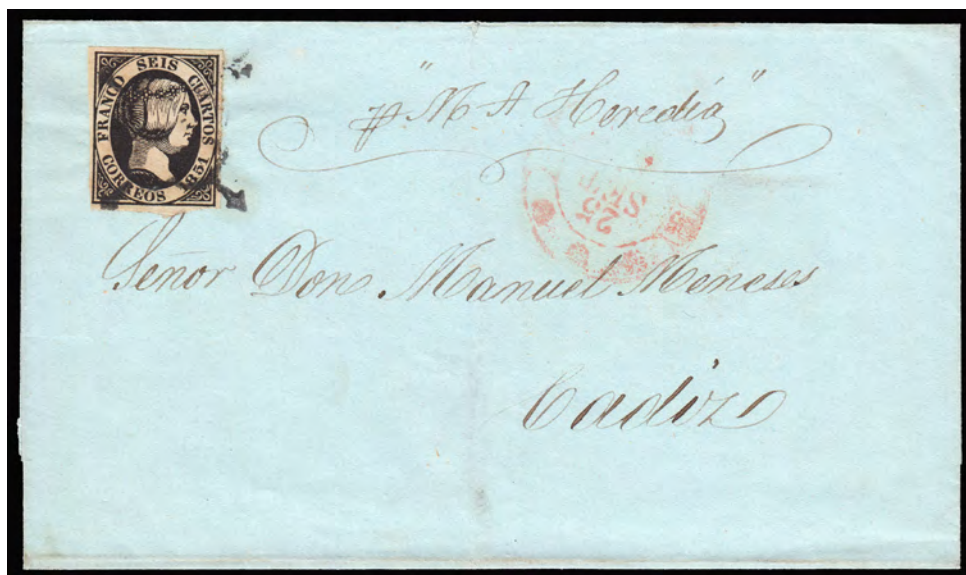 FRANCO SEIS CUARTOS
CORREOS 1851
"p M A Heredia"
25
Señor Don Manuel Meneses
Cadiz